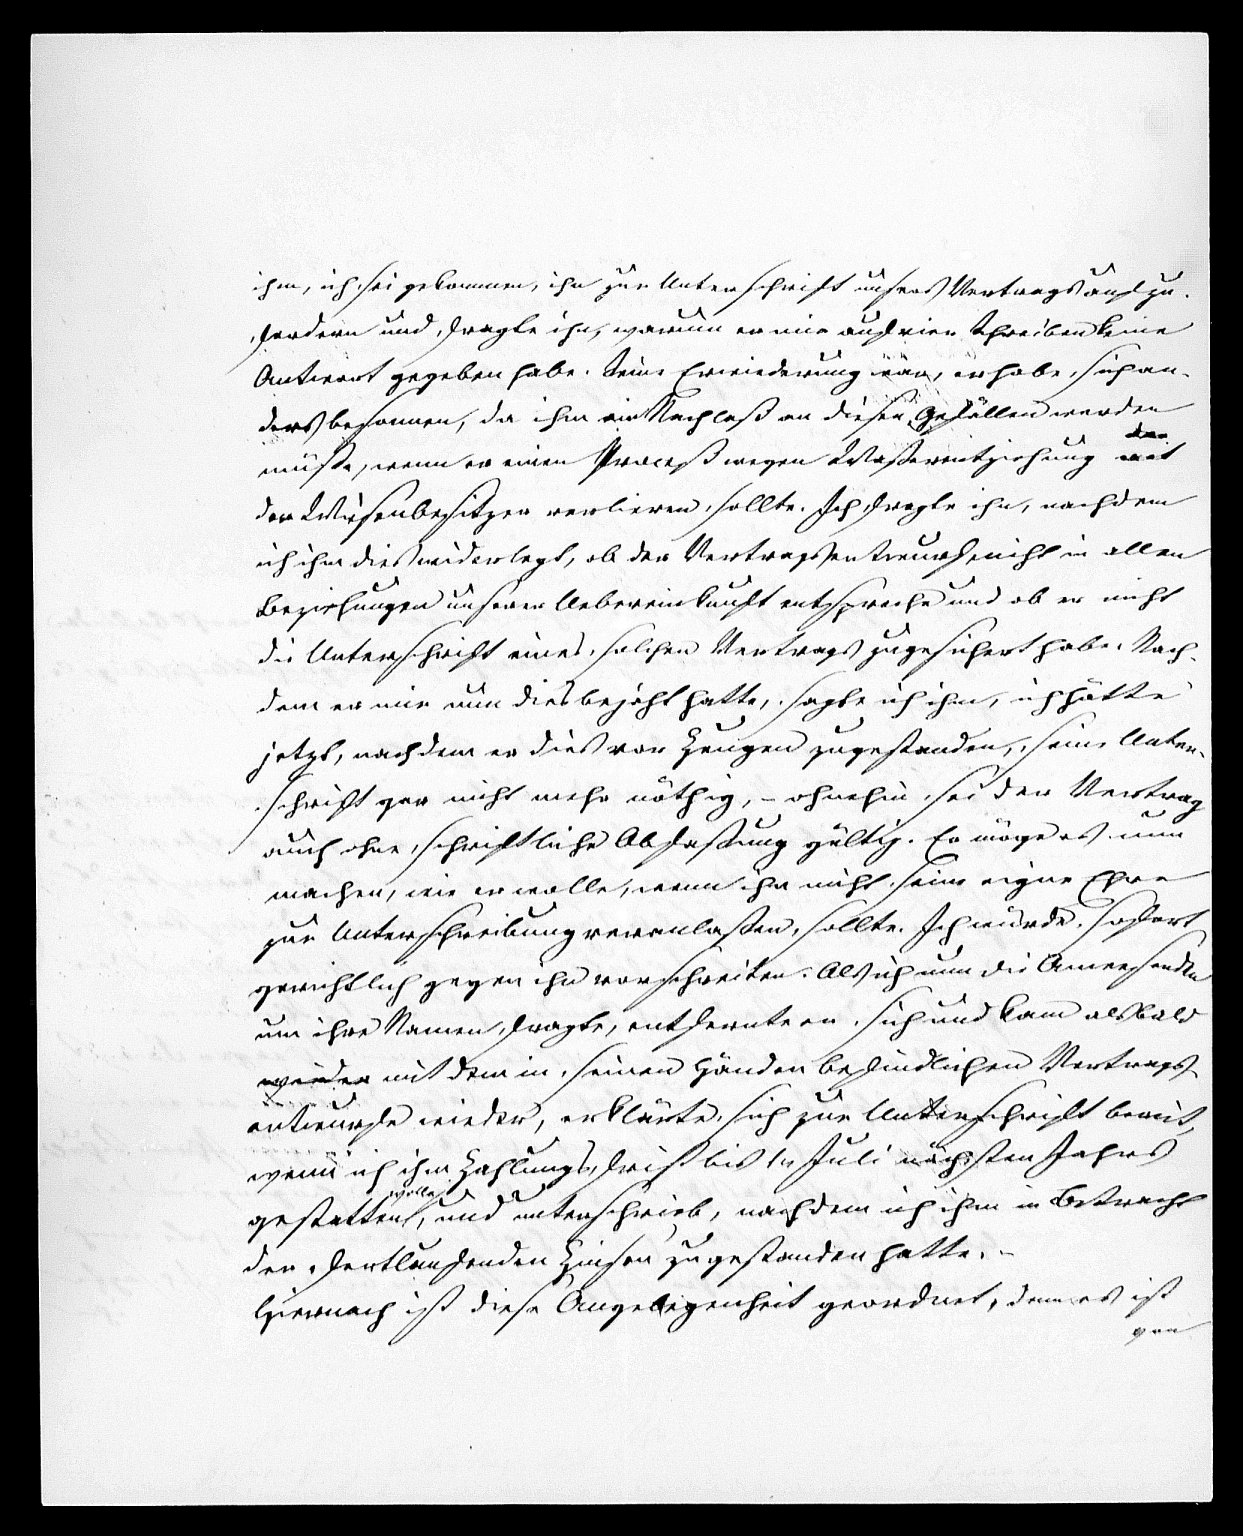 ihm, ich sei gekommen, ihn zur Unterschrift unsers Vertrags aufzu-
fordern und fragte ihn, warum er mir auf mein Schreiben keine
Antwort gegeben habe. Seine Erwiederung war, er habe sich an-
ders besonnen, da ihm ein Nachlaß an diesen Gefällen werden
müßte, wenn er einen Proceß wegen Wasserentziehung mit
den Wiesenbesitzern verlieren sollte. Ich fragte ihn, nachdem
ich ihm dies widerlegt, ob der Vertragsentwurf nicht in allen
Beziehungen unserer Uebereinkunft entspreche und ob er nicht
die Unterschrift eines solchen Vertrags zugesichert habe. Nach-
dem er mir nun dies bejaht hatte, sagte ich ihm, ich hätte
jetzt, nachdem er dies vor Zeugen zugestanden, seine Unter-
schrift gar nicht mehr nöthig, – ohnehin sei der Vertrag
auch ohne schriftliche Abfassung gültig. Er möge es nun
machen, wie er wolle, wenn ihn nicht seine eigne Ehre
zur Unterschreibung veranlassen sollte. Ich würde sofort
gerichtlich gegen ihn vorschreiten. Als ich nun die Anwesenden
um ihre Namen fragte, entfernte er sich und kam alsbald
wieder mit dem in seinen Händen befindlichen Vertrags-
entwurfe wieder, erklärte sich zur Unterschrift bereit,
wenn ich ihm Zahlungsfrist bis 1n Juli nächsten Jahrs
gestatten wolle, und unterschrieb, nachdem ich ihm in Betracht
der fortlaufenden Zinsen zugestanden hatte. –
Hiernach ist diese Angelegenheit geordnet, denn es ist
gar